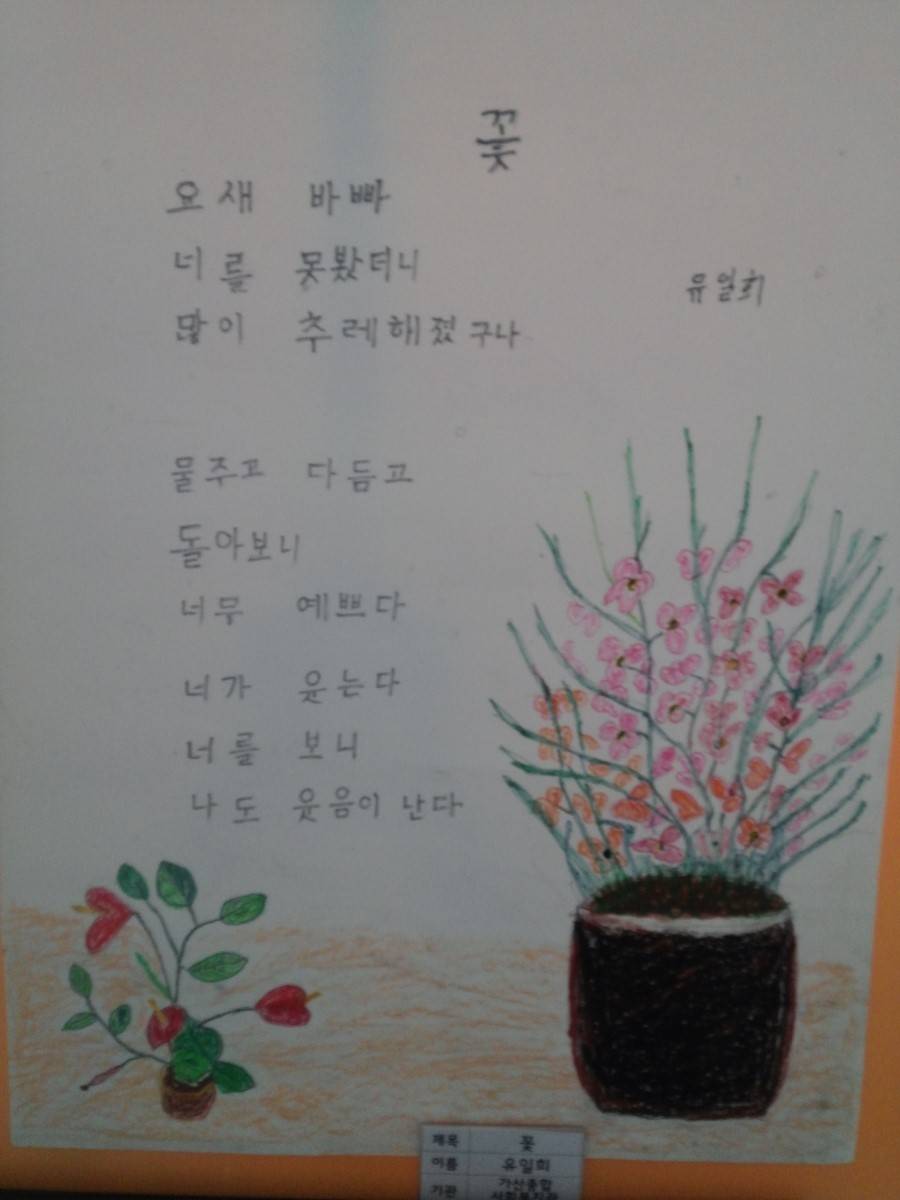 꽃
요새 바빠
너를 못봤더니
유일희
많이 추레해졌구나
물주고 다듬고
돌아보니
너무 예쁘다
네가 웃는다
너를 보니
나도 웃음이 난다
제목 꽃
이름 유일희
기관 가산종합